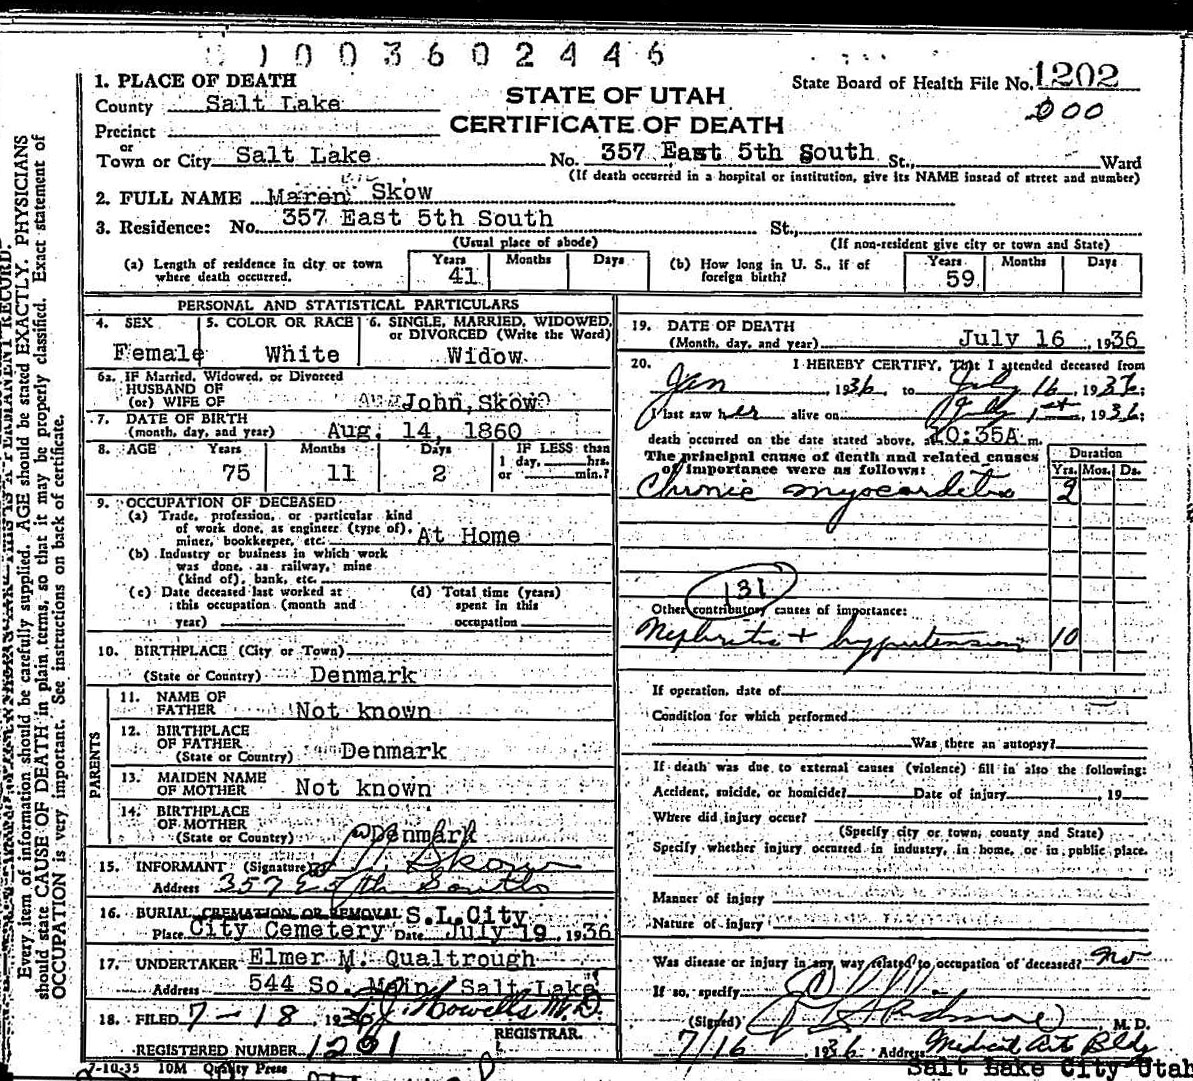 1003602446
1. PLACE OF DEATH
County Salt Lake
Precinct
or
Town or City Salt Lake
STATE OF UTAH
CERTIFICATE OF DEATH
State Board of Health File No. 1202
000
No. 357 East 5th South St., Ward
(If death occurred in a hospital or institution, give its NAME instead of street and number)
2. FULL NAME Maren Skow
3. Residence: No. 357 East 5th South St.,
(Usual place of abode)
(If non-resident give city or town and State)
(a) Length of residence in city or town where death occurred. Years 41 Months Days
(b) How long in U. S., if of foreign birth? Years 59 Months Days
PERSONAL AND STATISTICAL PARTICULARS
4. SEX
Female
5. COLOR OR RACE
White
6. SINGLE, MARRIED, WIDOWED, or DIVORCED (Write the Word)
Widow
6a. IF Married, Widowed, or Divorced
HUSBAND OF
(or) WIFE OF John Skow
7. DATE OF BIRTH
(month, day, and year) Aug. 14, 1860
8. AGE Years Months Days
75 11 2
IF LESS than
1 day, hrs.
or min.?
9. OCCUPATION OF DECEASED
(a) Trade, profession, or particular kind
of work done, as engineer (type of),
miner, bookkeeper, etc. At Home
(b) Industry or business in which work
was done, as railway, mine
(kind of), bank, etc.
(c) Date deceased last worked at
this occupation (month and
year)
(d) Total time (years)
spent in this
occupation
10. BIRTHPLACE (City or Town)
(State or Country) Denmark
PARENTS
11. NAME OF
FATHER Not known
12. BIRTHPLACE
OF FATHER
(State or Country) Denmark
13. MAIDEN NAME
OF MOTHER Not known
14. BIRTHPLACE
OF MOTHER
(State or Country) Denmark
15. INFORMANT (Signature) Skow
Address 357 E 5th South
16. BURIAL, CREMATION OR REMOVAL S.L.City
Place City Cemetery Date July 19, 1936
17. UNDERTAKER Elmer M. Qualtrough
Address 544 So. Main, Salt Lake
18. FILED 7-18, 1936 Howells M.D.
REGISTRAR.
REGISTERED NUMBER 1201
7-10-35 10M Quality Press
19. DATE OF DEATH
(Month, day, and year) July 16, 1936
20. I HEREBY CERTIFY, That I attended deceased from
Jan 1936 to July 16, 1936;
I last saw her alive on July 1st, 1936;
death occurred on the date stated above, at 10:35A m.
The principal cause of death and related causes
of importance were as follows:
Duration
Yrs. Mos. Ds.
Chronic myocarditis 2
131
Other contributory causes of importance:
Nephritis + hypertension 10
If operation, date of
Condition for which performed
Was there an autopsy?
If death was due to external causes (violence) fill in also the following:
Accident, suicide, or homicide? Date of injury, 19
Where did injury occur?
(Specify city or town, county and State)
Specify whether injury occurred in industry, in home, or in public place.
Manner of injury
Nature of injury
Was disease or injury in any way related to occupation of deceased? no
If so, specify
(Signed) M. D.
7/16, 1936 Address Medical Art Bldg
Salt Lake City Utah
Every item of information should be carefully supplied. AGE should be stated EXACTLY. PHYSICIANS
should state CAUSE OF DEATH in plain terms, so that it may be properly classified. Exact statement of
OCCUPATION is very important. See instructions on back of certificate.